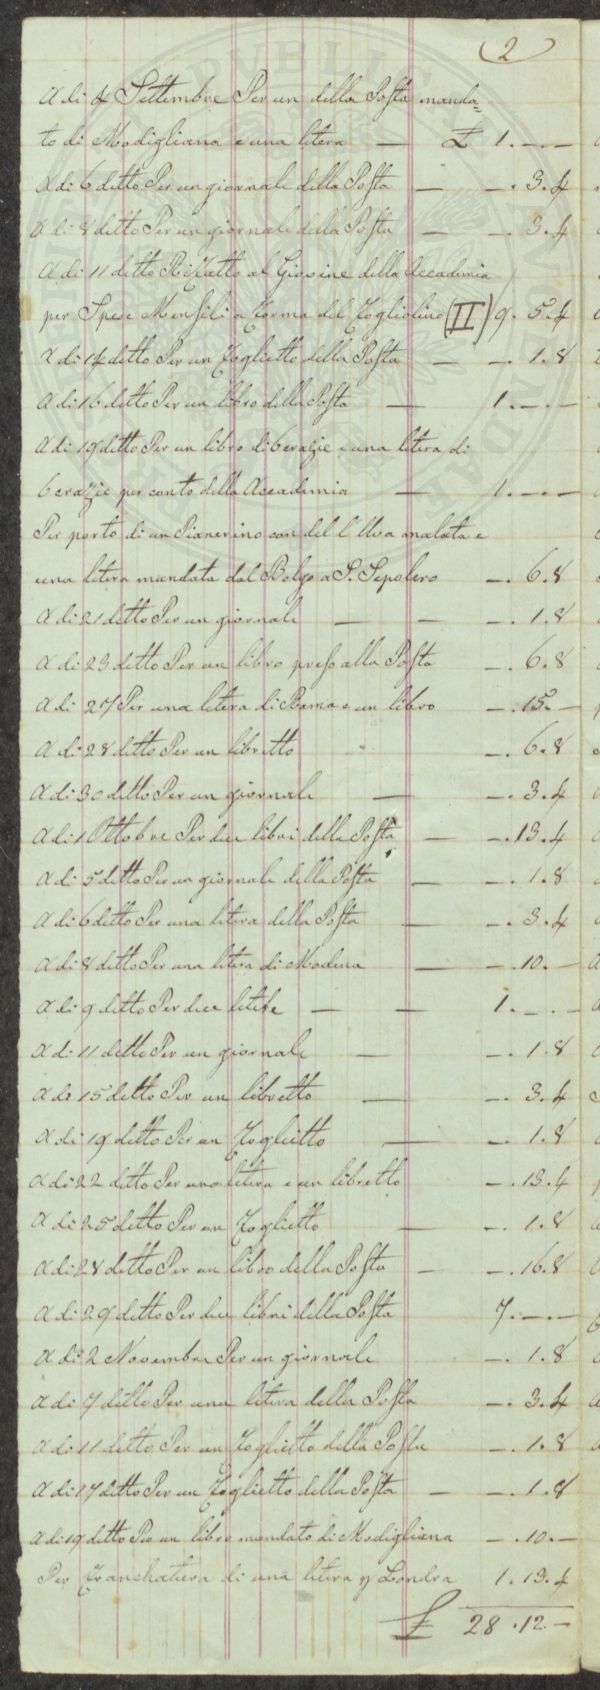 (2)
A di 4 Settembre Per un della Posta manda=
to di Modigliana e una litera — £ 1.—.—
A di 6 ditto Per un giornale della Posta — —. 3.4
A di 8 ditto Per un giornale della Posta — —. 3.4
A di 11 ditto Rifatto al Giovine della Accademia
per Spese Mensili a forma del fogliolino (II) 9. 5.4
A di 14 ditto Per un foglietto della Posta — —. 1.8
A di 16 ditto Per un libro della Posta — 1.—.—
A di 19 ditto Per un libro di 6 crazie e una litera di
6 crazie per conto della Accademia — 1.—.—
Per porto di un Pianerino con del l'Uva malata e
una litera mandata dal Bolgo a S. Sepolcro —. 6.8
A di 21 ditto Per un giornale — — —. 1.8
A di 23 ditto Per un libro preso alla Posta —. 6.8
A di 27 Per una litera di Roma e un libro —. 15.—
A di 28 ditto Per un libretto —. 6.8
A di 30 ditto Per un giornale — —. 3.4
A di 1 Ottobre Per due libri della Posta — —. 13.4
A di 5 ditto Per un giornale della Posta — —. 1.8
A di 6 ditto Per una litera della Posta — —. 3.4
A di 8 ditto Per una litera di Modena — —. 10.—
A di 9 ditto Per due litere — — 1.—.—
A di 11 ditto Per un giornale — —. 1.8
A di 15 ditto Per un libretto — —. 3.4
A di 19 ditto Per un foglietto — —. 1.8
A di 22 ditto Per una litera e un libretto —. 13.4
A di 25 ditto Per un foglietto — —. 1.8
A di 28 ditto Per un libro della Posta — —. 16.8
A di 29 ditto Per due libri della Posta 7.—.—
A di 2 Novembre Per un giornale —. 1.8
A di 7 ditto Per una litera della Posta —. 3.4
A di 11 ditto Per un foglietto della Posta —. 1.8
A di 17 ditto Per un foglietto della Posta — —. 1.8
A di 19 ditto Per un libro mandato di Modigliana —. 10.—
Per francatura di una litera p Londra 1. 13.4
£ 28.12.—